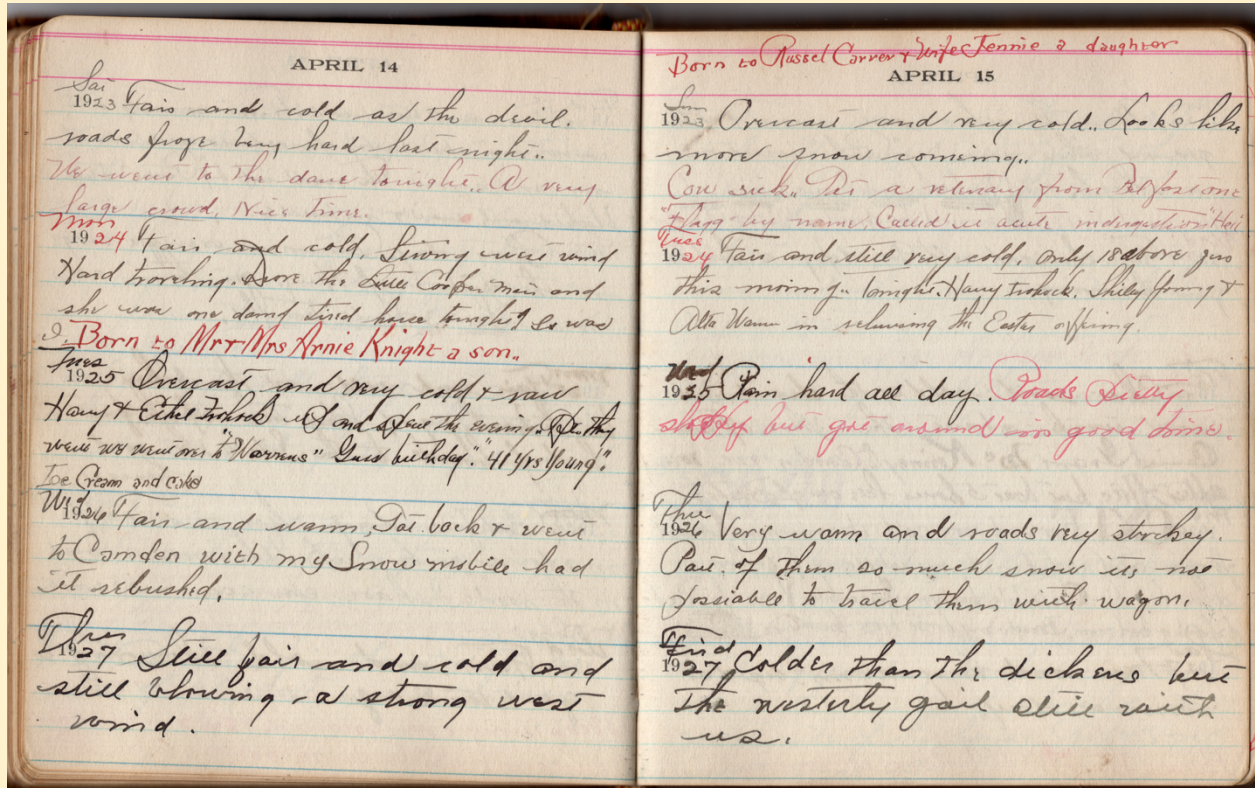 APRIL 14
Sat
1923 Fair and cold as the devil.
roads froze very hard last night..
We went to the dance tonight.. A very
large crowd, Nice time.
Mon
1924 Fair and cold. Strong west wind
Hard traveling. Drove the Cooper mare and
she was one damd tired horse tonight! So was
I. Born to Mr + Mrs Arnie Knight a son..
Tues
1925 Overcast and very cold + raw
Harry + Ethel Frohock up and spent the evening. they
went we went over to "Warrens" birthday." 41 Yrs Young".
Ice Cream and cake
Wed
1926 Fair and warm, back + went
to Camden with my Snow mobile had
it rebushed.
Thur
1927 Still fair and cold and
still blowing a strong west
wind.
Born to Russel Carver + Wife Jennie a daughter
APRIL 15
Sun
1923 Overcast and very cold.. Looks like
more snow coming..
Cow sick.. a vetenary from Belfast one
"Flagg" by name, Called it acute indigestion
Tues
1924 Fair and still very cold, only 18 above zero
this morning.. Tonight. Harry Frohock. Young +
Alta in the Easter offering.
Wed
1925 Rain hard all day. Roads Pretty
sloppy but got around in good time.
Thur
1926 Very warm and roads very
Part of them so much snow its not
possiable to travel them with wagon.
Frid
1927 Colder than the dickens but
the westerly gail still with
us.